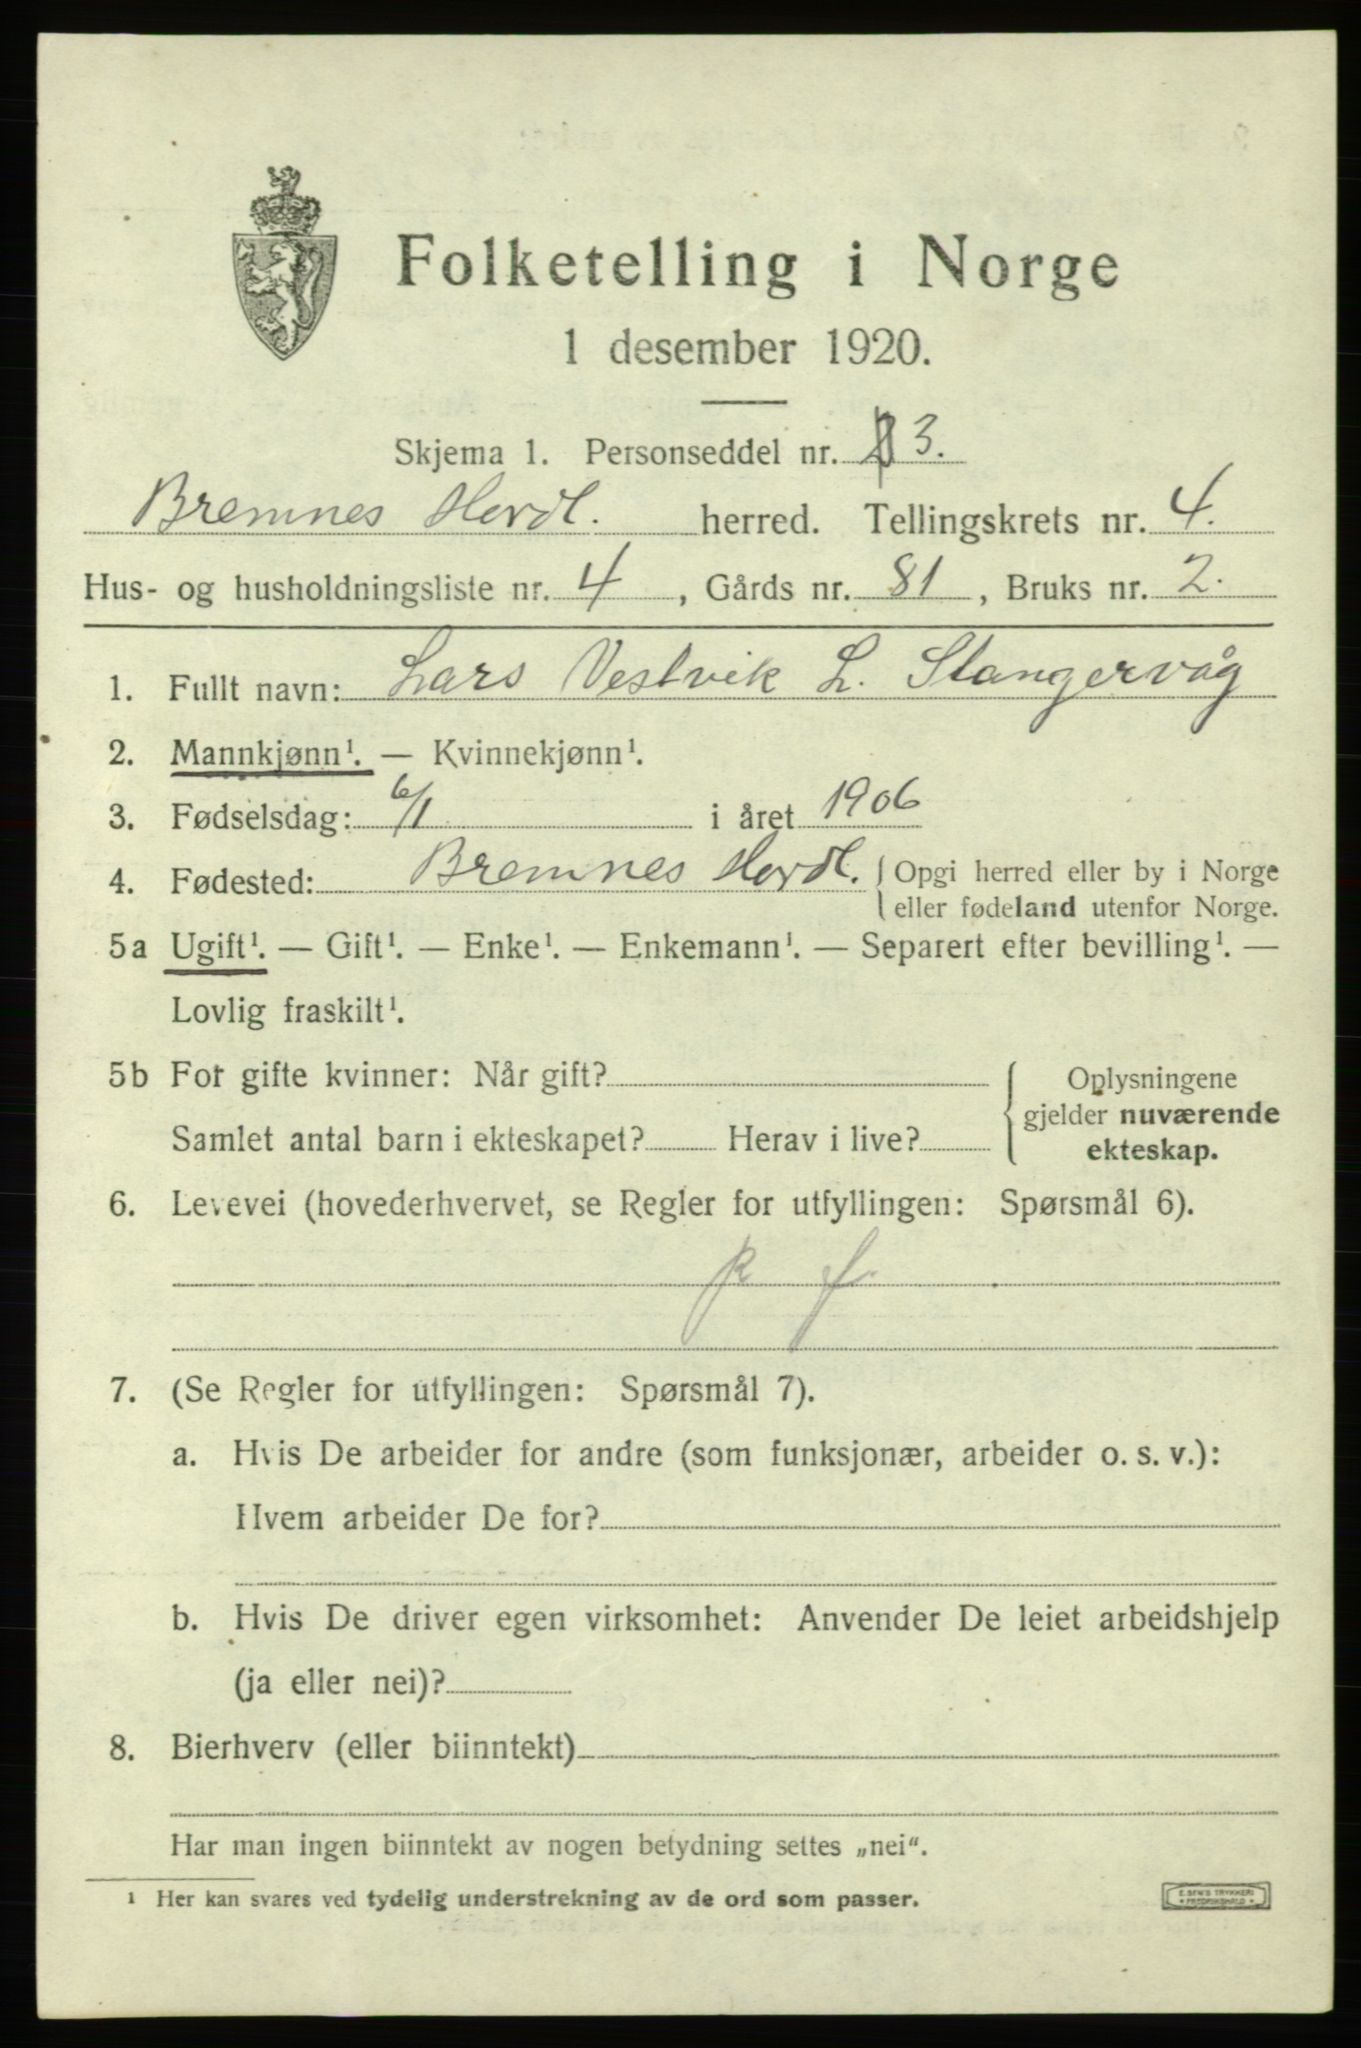 Folketelling i Norge
1 desember 1920.
Skjema 1. Personseddel nr. 3.
Bremnes Hordl. herred. Tellingskrets nr. 4.
Hus- og husholdningsliste nr. 4, Gårds nr. 81, Bruks nr. 2.
1. Fullt navn: Lars Vestvik L. Stangervåg
2. Mannkjønn¹. — Kvinnekjønn¹.
3. Fødselsdag: 6/1 i året 1906
4. Fødested: Bremnes Hordl. Opgi herred eller by i Norge
eller fødeland utenfor Norge.
5a Ugift¹. — Gift¹. — Enke¹. — Enkemann¹. — Separert efter bevilling¹. —
Lovlig fraskilt¹.
5b For gifte kvinner: Når gift?
Samlet antal barn i ekteskapet? Herav i live?
Oplysningene
gjelder nuværende
ekteskap.
6. Levevei (hovederhvervet, se Regler for utfyllingen: Spørsmål 6).
7. (Se Regler for utfyllingen: Spørsmål 7).
a. Hvis De arbeider for andre (som funksjonær, arbeider o. s. v.):
Hvem arbeider De for?
b. Hvis De driver egen virksomhet: Anvender De leiet arbeidshjelp
(ja eller nei)?
8. Bierhverv (eller biinntekt)
Har man ingen biinntekt av nogen betydning settes „nei“.
¹ Her kan svares ved tydelig understrekning av de ord som passer.